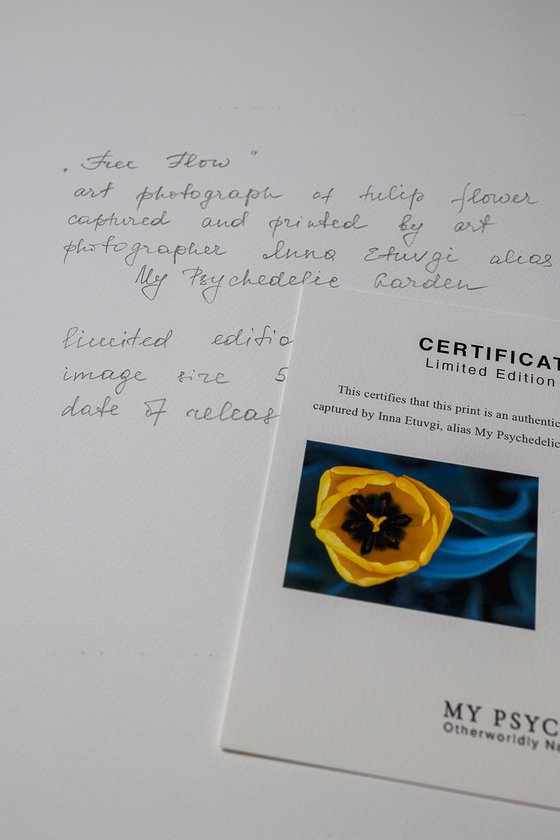 „Free Flow"
art photograph of tulip flower
captured and printed by art
photographer Inna Etuvgi alias
My Psychedelic Garden
limited editio
image size 5
date of releas
CERTIFICAT
Limited Edition
This certifies that this print is an authentic
captured by Inna Etuvgi, alias My Psychedelic
MY PSYC
Otherworldly Na